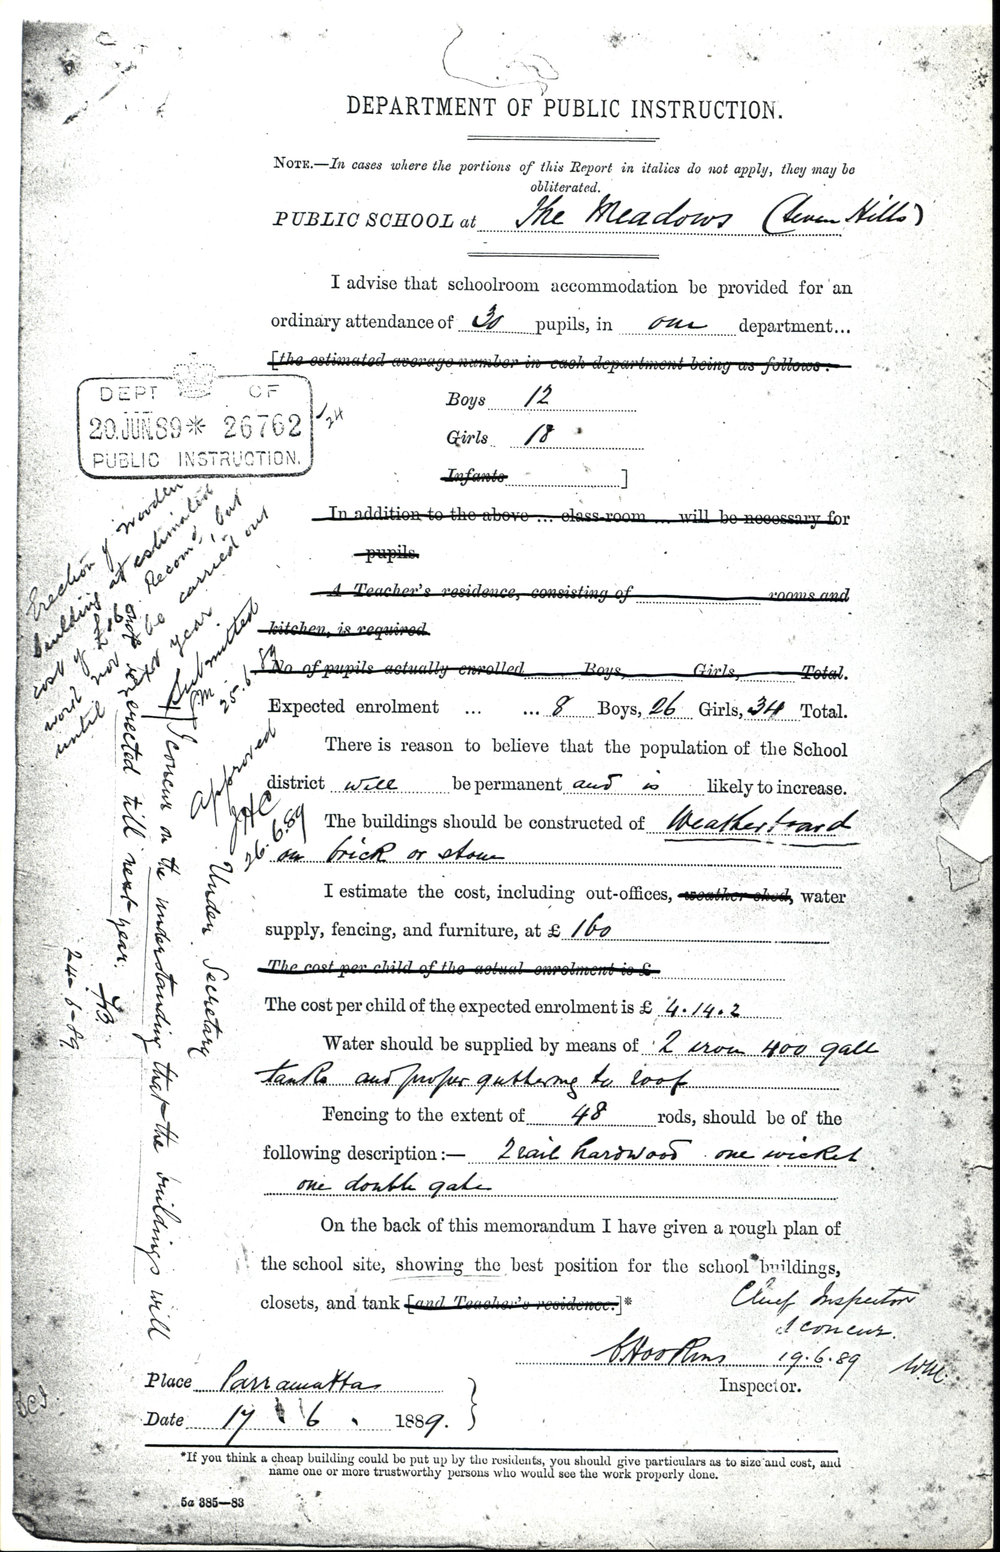 DEPARTMENT OF PUBLIC INSTRUCTION.
NOTE.—In cases where the portions of this Report in italics do not apply, they may be
obliterated.
PUBLIC SCHOOL at The Meadows (Seven Hills)
I advise that schoolroom accommodation be provided for an
ordinary attendance of 30 pupils, in one department...
[the estimated average number in each department being as follows:—
Boys 12
Girls 18
Infants ]
In addition to the above ... class-room ... will be necessary for
pupils.
A Teacher's residence, consisting of rooms and
kitchen, is required.
No of pupils actually enrolled Boys, Girls, Total.
Expected enrolment ... ... 8 Boys, 26 Girls, 34 Total.
There is reason to believe that the population of the School
district will be permanent and is likely to increase.
The buildings should be constructed of Weatherboard
on brick or stone
I estimate the cost, including out-offices, weather shed, water
supply, fencing, and furniture, at £ 160
The cost per child of the actual enrolment is £
The cost per child of the expected enrolment is £ 4.14.2
Water should be supplied by means of 2 iron 400 gall
tanks and proper guttering to roof
Fencing to the extent of 48 rods, should be of the
following description:— 2 rail hardwood one wicket
one double gate
On the back of this memorandum I have given a rough plan of
the school site, showing the best position for the school buildings,
closets, and tank [and Teacher's residence.]*
Chief Inspector
I concur.
19.6.89
W.M.
Inspector.
Place Parramatta
Date 17 6 . 1889.
*If you think a cheap building could be put up by the residents, you should give particulars as to size and cost, and
name one or more trustworthy persons who would see the work properly done.
5a 385—83
DEPT OF
20.JUN.89* 26762
PUBLIC INSTRUCTION.
/24
Erection of wooden
building at estimated
cost of Recomd, but
work not be carried out
until next year
Submitted
25.6.89
Approved
JHC
26.6.89
Under Secretary
I concur on the understanding that the buildings will
not be erected till next year.
24-6-89